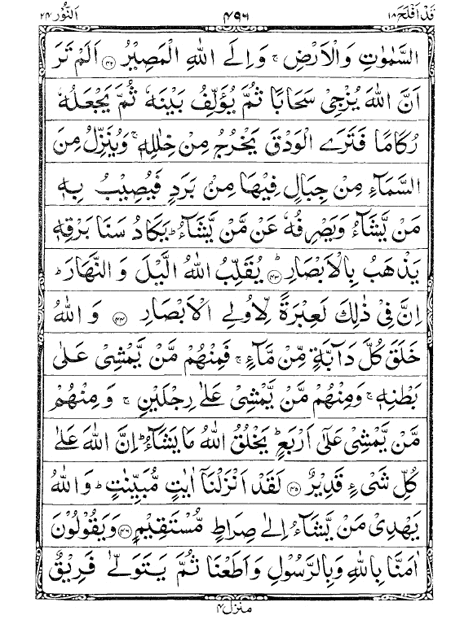 قد افلح ۱۸ ۴۹۶ النور ۲۴
السَّمٰوٰتِ وَالْاَرْضِ ۚ وَاِلَى اللّٰهِ الْمَصِيْرُ ﴿۴۲﴾ اَلَمْ تَرَ
اَنَّ اللّٰهَ يُزْجِيْ سَحَابًا ثُمَّ يُؤَلِّفُ بَيْنَهٗ ثُمَّ يَجْعَلُهٗ
رُكَامًا فَتَرَى الْوَدْقَ يَخْرُجُ مِنْ خِلٰلِهٖ ۚ وَيُنَزِّلُ مِنَ
السَّمَآءِ مِنْ جِبَالٍ فِيْهَا مِنْۢ بَرَدٍ فَيُصِيْبُ بِهٖ
مَنْ يَّشَآءُ وَيَصْرِفُهٗ عَنْ مَّنْ يَّشَآءُ ؕ يَكَادُ سَنَا بَرْقِهٖ
يَذْهَبُ بِالْاَبْصَارِ ؕ﴿۴۳﴾ يُقَلِّبُ اللّٰهُ الَّيْلَ وَالنَّهَارَ ؕ
اِنَّ فِيْ ذٰلِكَ لَعِبْرَةً لِّاُولِي الْاَبْصَارِ ﴿۴۴﴾ وَاللّٰهُ
خَلَقَ كُلَّ دَآبَّةٍ مِّنْ مَّآءٍ ۚ فَمِنْهُمْ مَّنْ يَّمْشِيْ عَلٰى
بَطْنِهٖ ۚ وَمِنْهُمْ مَّنْ يَّمْشِيْ عَلٰى رِجْلَيْنِ ۚ وَمِنْهُمْ
مَّنْ يَّمْشِيْ عَلٰٓى اَرْبَعٍ ؕ يَخْلُقُ اللّٰهُ مَا يَشَآءُ ؕ اِنَّ اللّٰهَ عَلٰى
كُلِّ شَيْءٍ قَدِيْرٌ ﴿۴۵﴾ لَقَدْ اَنْزَلْنَآ اٰيٰتٍ مُّبَيِّنٰتٍ ؕ وَاللّٰهُ
يَهْدِيْ مَنْ يَّشَآءُ اِلٰى صِرَاطٍ مُّسْتَقِيْمٍ ﴿۴۶﴾ وَيَقُوْلُوْنَ
اٰمَنَّا بِاللّٰهِ وَبِالرَّسُوْلِ وَاَطَعْنَا ثُمَّ يَتَوَلّٰى فَرِيْقٌ
منزل ۴